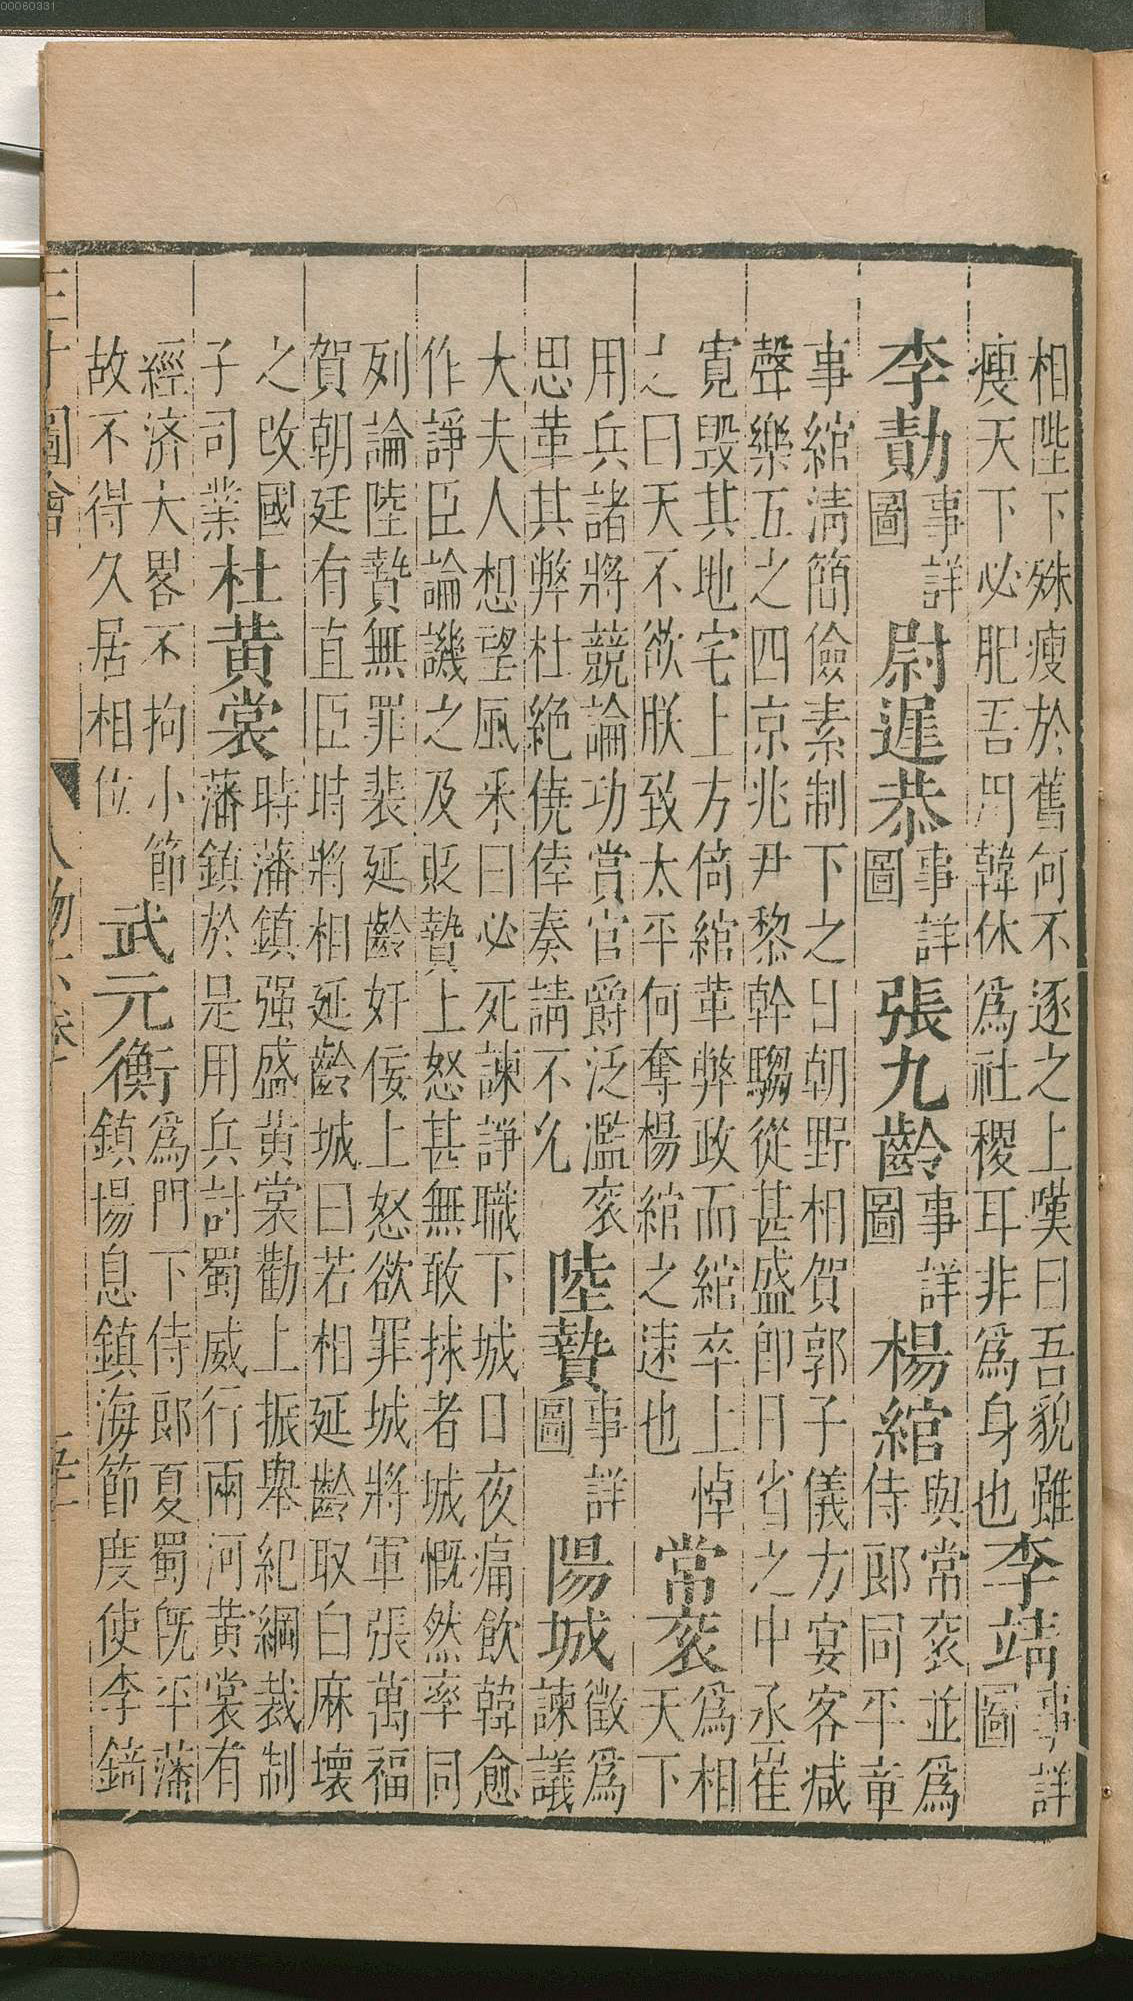 00060331
相陛下殊瘦於舊何不逐之上嘆曰吾貌雖
瘦天下必肥吾用韓休爲社稷耳非爲身也
李靖
事詳
圖
李勣
事詳
圖
尉遲恭
事詳
圖
張九齡
事詳
圖
楊綰
與常袞並爲
侍郎同平章
事綰清簡儉素制下之日朝野相賀郭子儀方宴客减
聲樂五之四京兆尹黎幹騶從甚盛卽日省之中丞崔
寛毀其地宅上方倚綰革弊政而綰卒上悼
之曰天不欲朕致太平何奪楊綰之速也
常袞
爲相
天下
用兵諸將競論功賞官爵泛濫袞
思革其弊杜絶僥倖奏請不允
陸贄
事詳
圖
陽城
徵爲
諫議
大夫人想望風釆曰必死諫諍職下城日夜痛飲韓愈
作諍臣論譏之及貶贄上怒甚無敢捄者城慨然率同
列論陸贄無罪裴延齡奸佞上怒欲罪城將軍張萬福
賀朝廷有直臣時將相延齡城曰若相延齡取白麻壞
之改國
子司業
杜黄裳
時藩鎮强盛黄裳勸上振舉紀綱裁制
藩鎮於是用兵討蜀威行兩河黄裳有
經济大畧不拘小節
故不得久居相位
武元衡
爲門下侍郎夏蜀旣平藩
鎮惕息鎮海節度使李錡
三才圖會
人物六卷